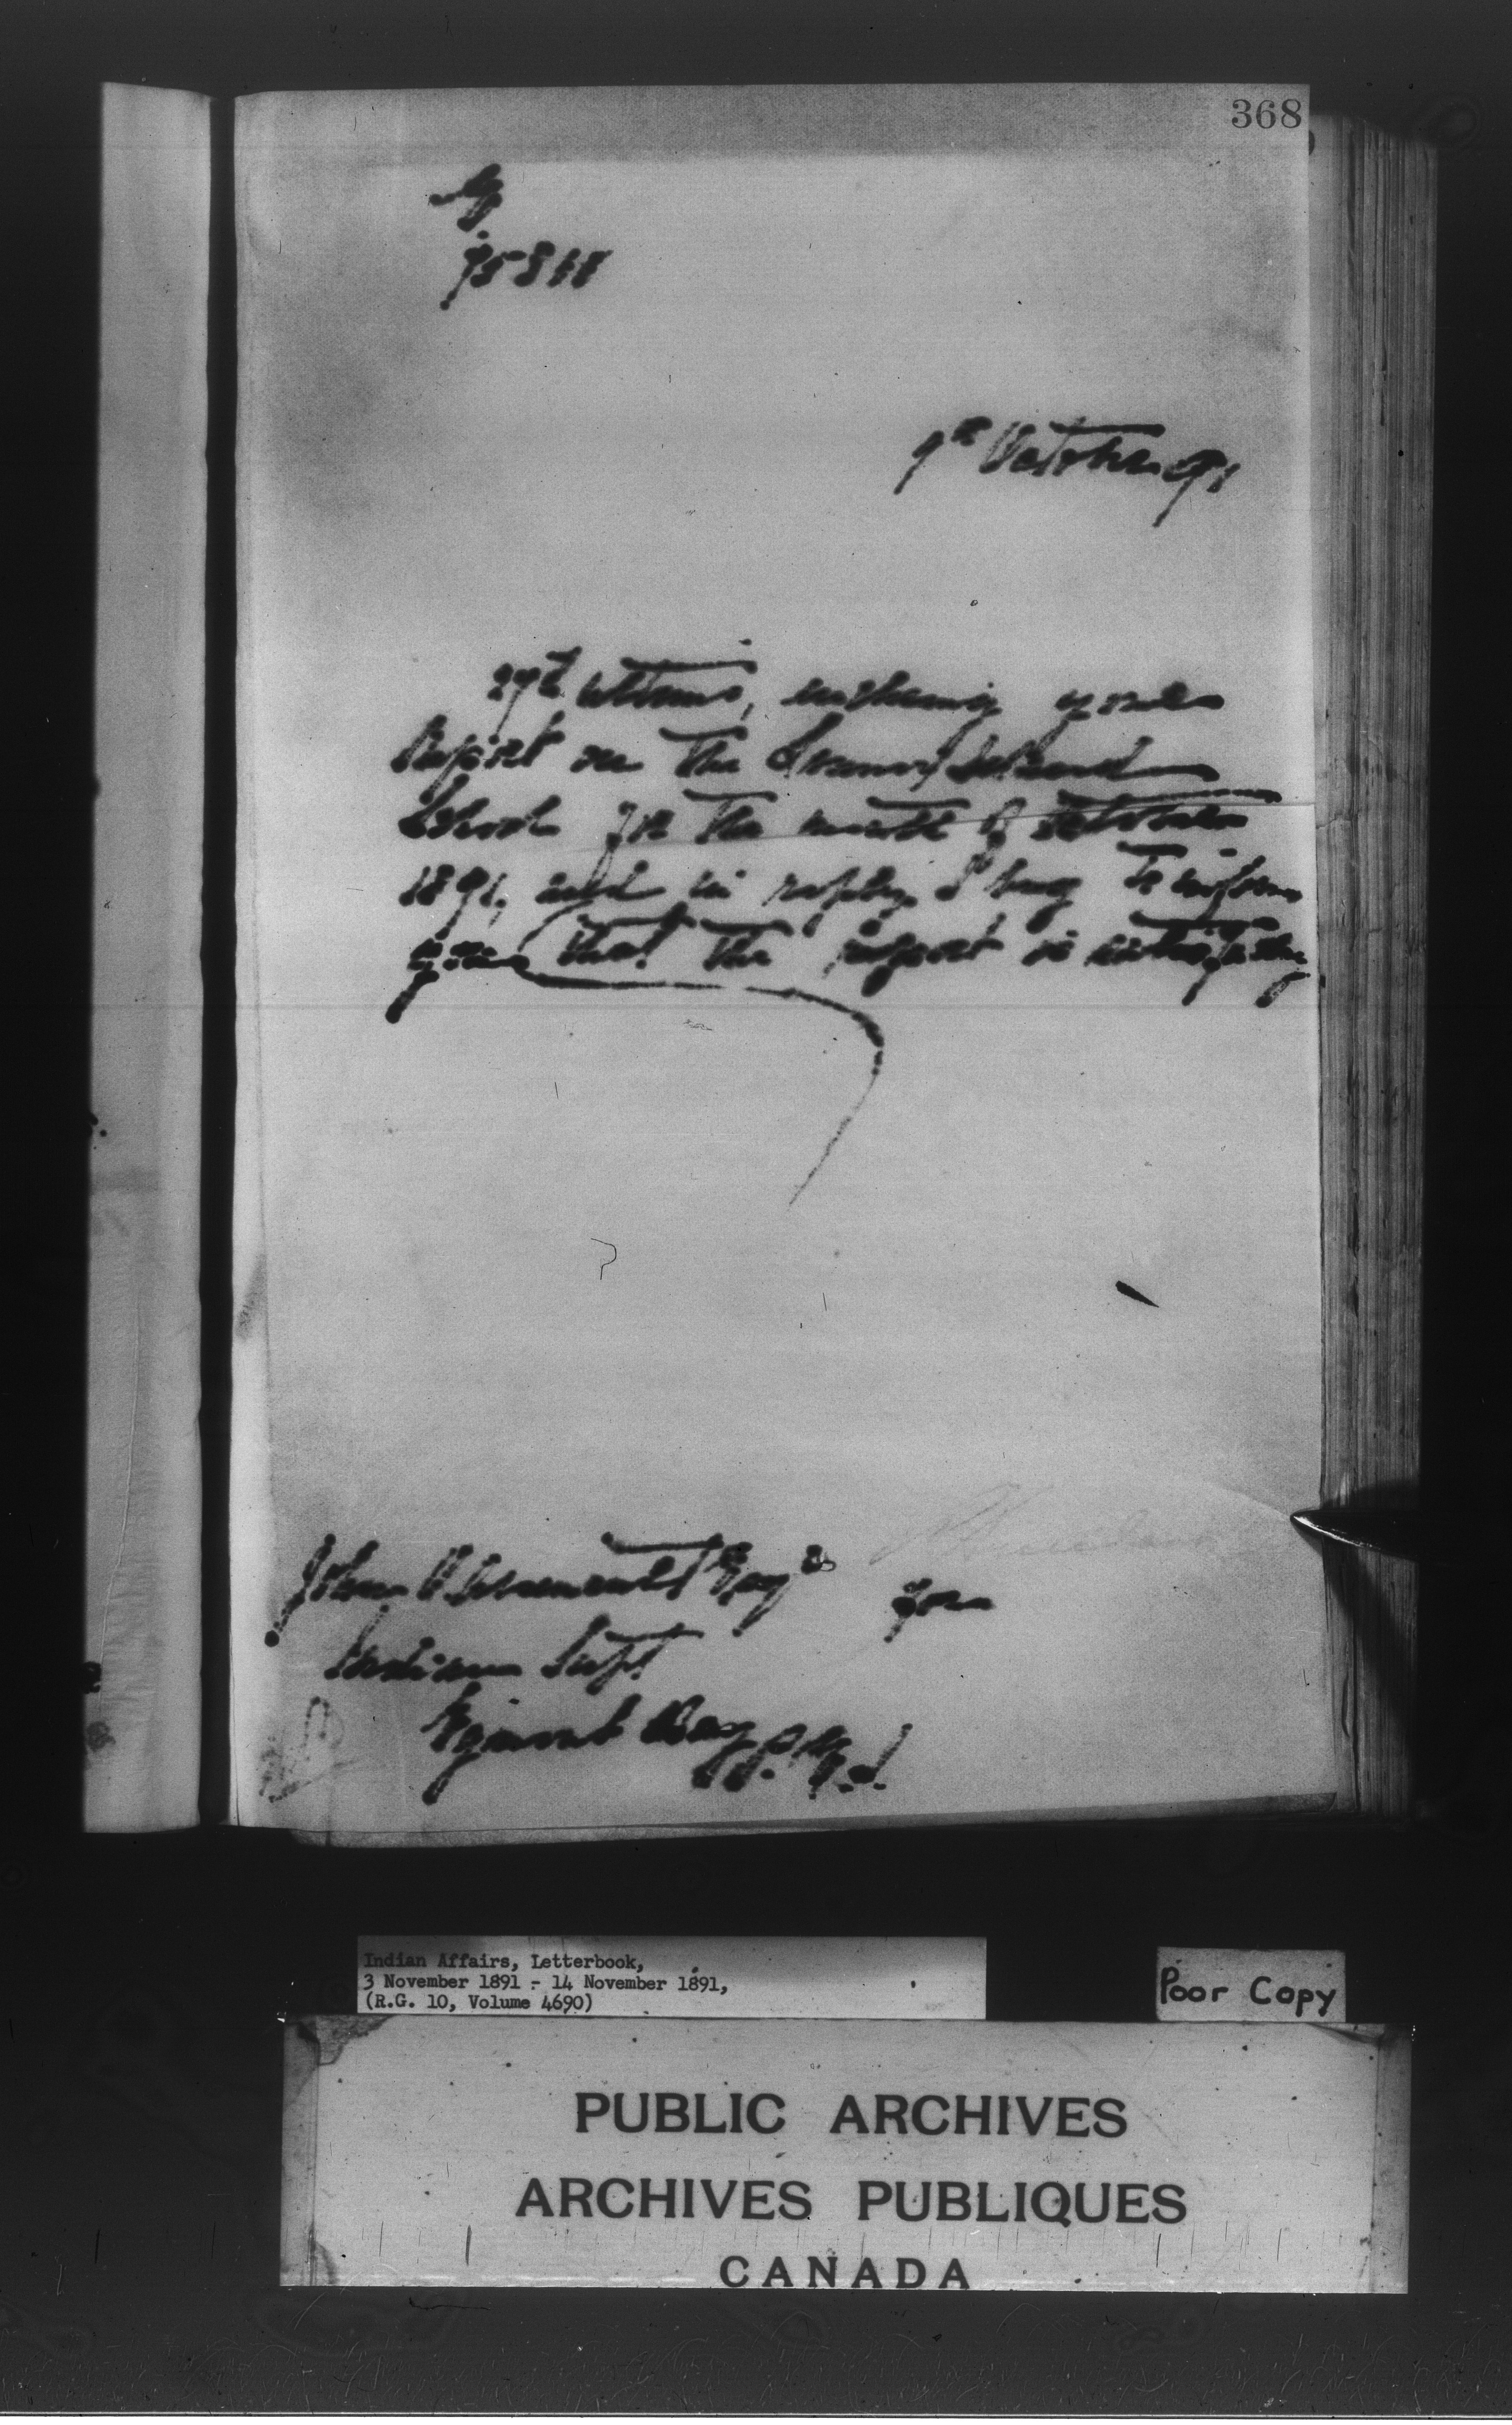 368
95811
9th October 91
27th Ultimo, enclosing your
Report on the Lennox Island
School for the month of October
1891, and in reply I beg to inform
you that the report is satisfactory
John O. Arsenault Esq
Your
Indian Supt
Egmont Bay, P.E.I.
Indian Affairs, Letterbook,
3 November 1891 - 14 November 1891,
(R.G. 10, Volume 4690)
Poor Copy
PUBLIC ARCHIVES
ARCHIVES PUBLIQUES
CANADA